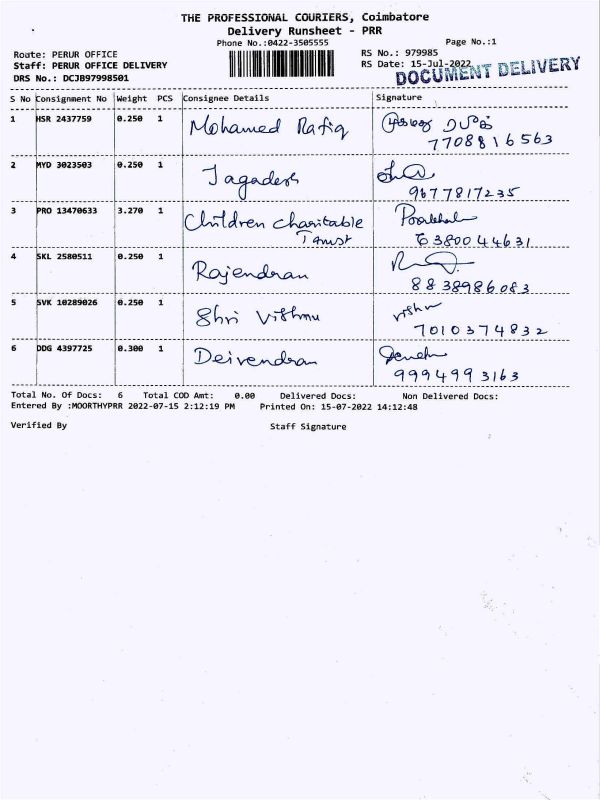 THE PROFESSIONAL COURIERS, Coimbatore
Delivery Runsheet - PRR
Phone No.:0422-3505555 Page No.:1
Route: PERUR OFFICE RS No.: 979985
Staff: PERUR OFFICE DELIVERY RS Date: 15-Jul-2022
DRS No.: DCJB97998501 DOCUMENT DELIVERY
S No Consignment No Weight PCS Consignee Details Signature
1 HSR 2437759 0.250 1 Mohamed Rafiq ரபீக்
7708816563
2 MYD 3023503 0.250 1 Jagadesh
9677817235
3 PRO 13470633 3.270 1 Children Charitable
Trust 6380044631
4 SKL 2580511 0.250 1 Rajendran
8838986083
5 SVK 10289026 0.250 1 Shri Vishnu vishnu
7010374832
6 DDG 4397725 0.300 1 Deivendran
9994993163
Total No. Of Docs: 6 Total COD Amt: 0.00 Delivered Docs: Non Delivered Docs:
Entered By :MOORTHYPRR 2022-07-15 2:12:19 PM Printed On: 15-07-2022 14:12:48
Verified By Staff Signature